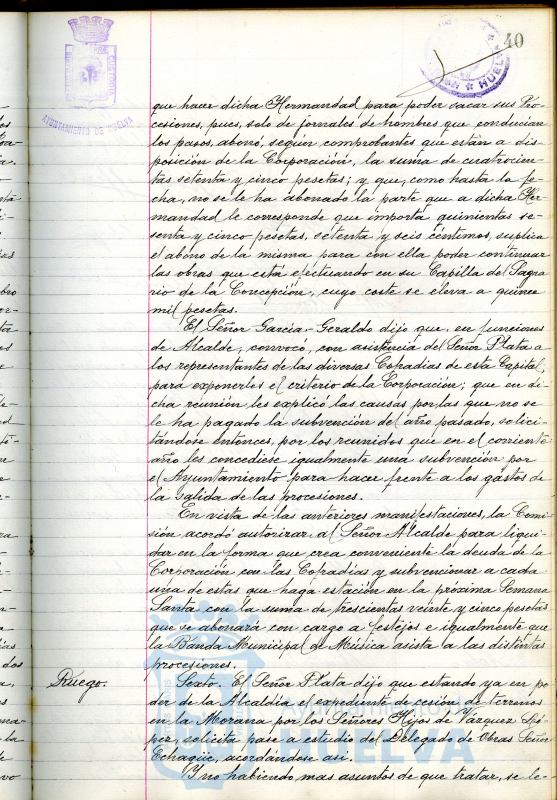 40
AYUNTAMIENTO DE HUELVA
HUELVA
que hacer dicha Hermandad para poder sacar sus Pro-
cesiones, pues, solo de jornales de hombres que conducian
los pasos, abonó, segun comprobantes que estan a dis-
posición de la Corporación, la suma de cuatrocien-
tas setenta y cinco pesetas; y que, como hasta la fe-
cha, no se le ha abonado la parte que a dicha Her-
mandad le corresponde que importa quinientas se-
senta y cinco pesetas, setenta y seis céntimos, suplica
el abono de la misma para con ella poder continuar
las obras que está efectuando en su Capilla del Sagra-
rio de la Concepción, cuyo coste se eleva a quince
mil pesetas.
El Señor Garcia-Geraldo dijo que, en funciones
de Alcalde, convocó, con asistencia del Señor Plata a
los representantes de las diversas Cofradias de esta Capital,
para exponerles el criterio de la Corporación; que en di-
cha reunión les explicó las causas por las que no se
le ha pagado la subvención del año pasado, solici-
tándose entonces, por los reunidos que en el corriente
año les concediese igualmente una subvención por
el Ayuntamiento para hacer frente a los gastos de
la salida de las procesiones.
En vista de las anteriores manifestaciones, la Comi-
sión, acordó autorizar al Señor Alcalde para liqui-
dar en la forma que crea conveniente la deuda de la
Corporación con las Cofradias y subvencionar a cada
una de estas que haga estación en la próxima Semana
Santa con la suma de trescientas veinte y cinco pesetas
que se abonará con cargo a festejos e igualmente que
la Banda Municipal de Música asista a las distintas
procesiones.
Ruego.
Sexto. El Señor Plata dijo que estando ya en po-
der de la Alcaldia el expediente de cesión de terrenos
en la Morana por los Señores Hijos de Vázquez Ló-
pez, solicita pase a estudio del Delegado de Obras Señor
Echagüe, acordándose asi.
Y no habiendo mas asuntos de que tratar, se le-
HUELVA